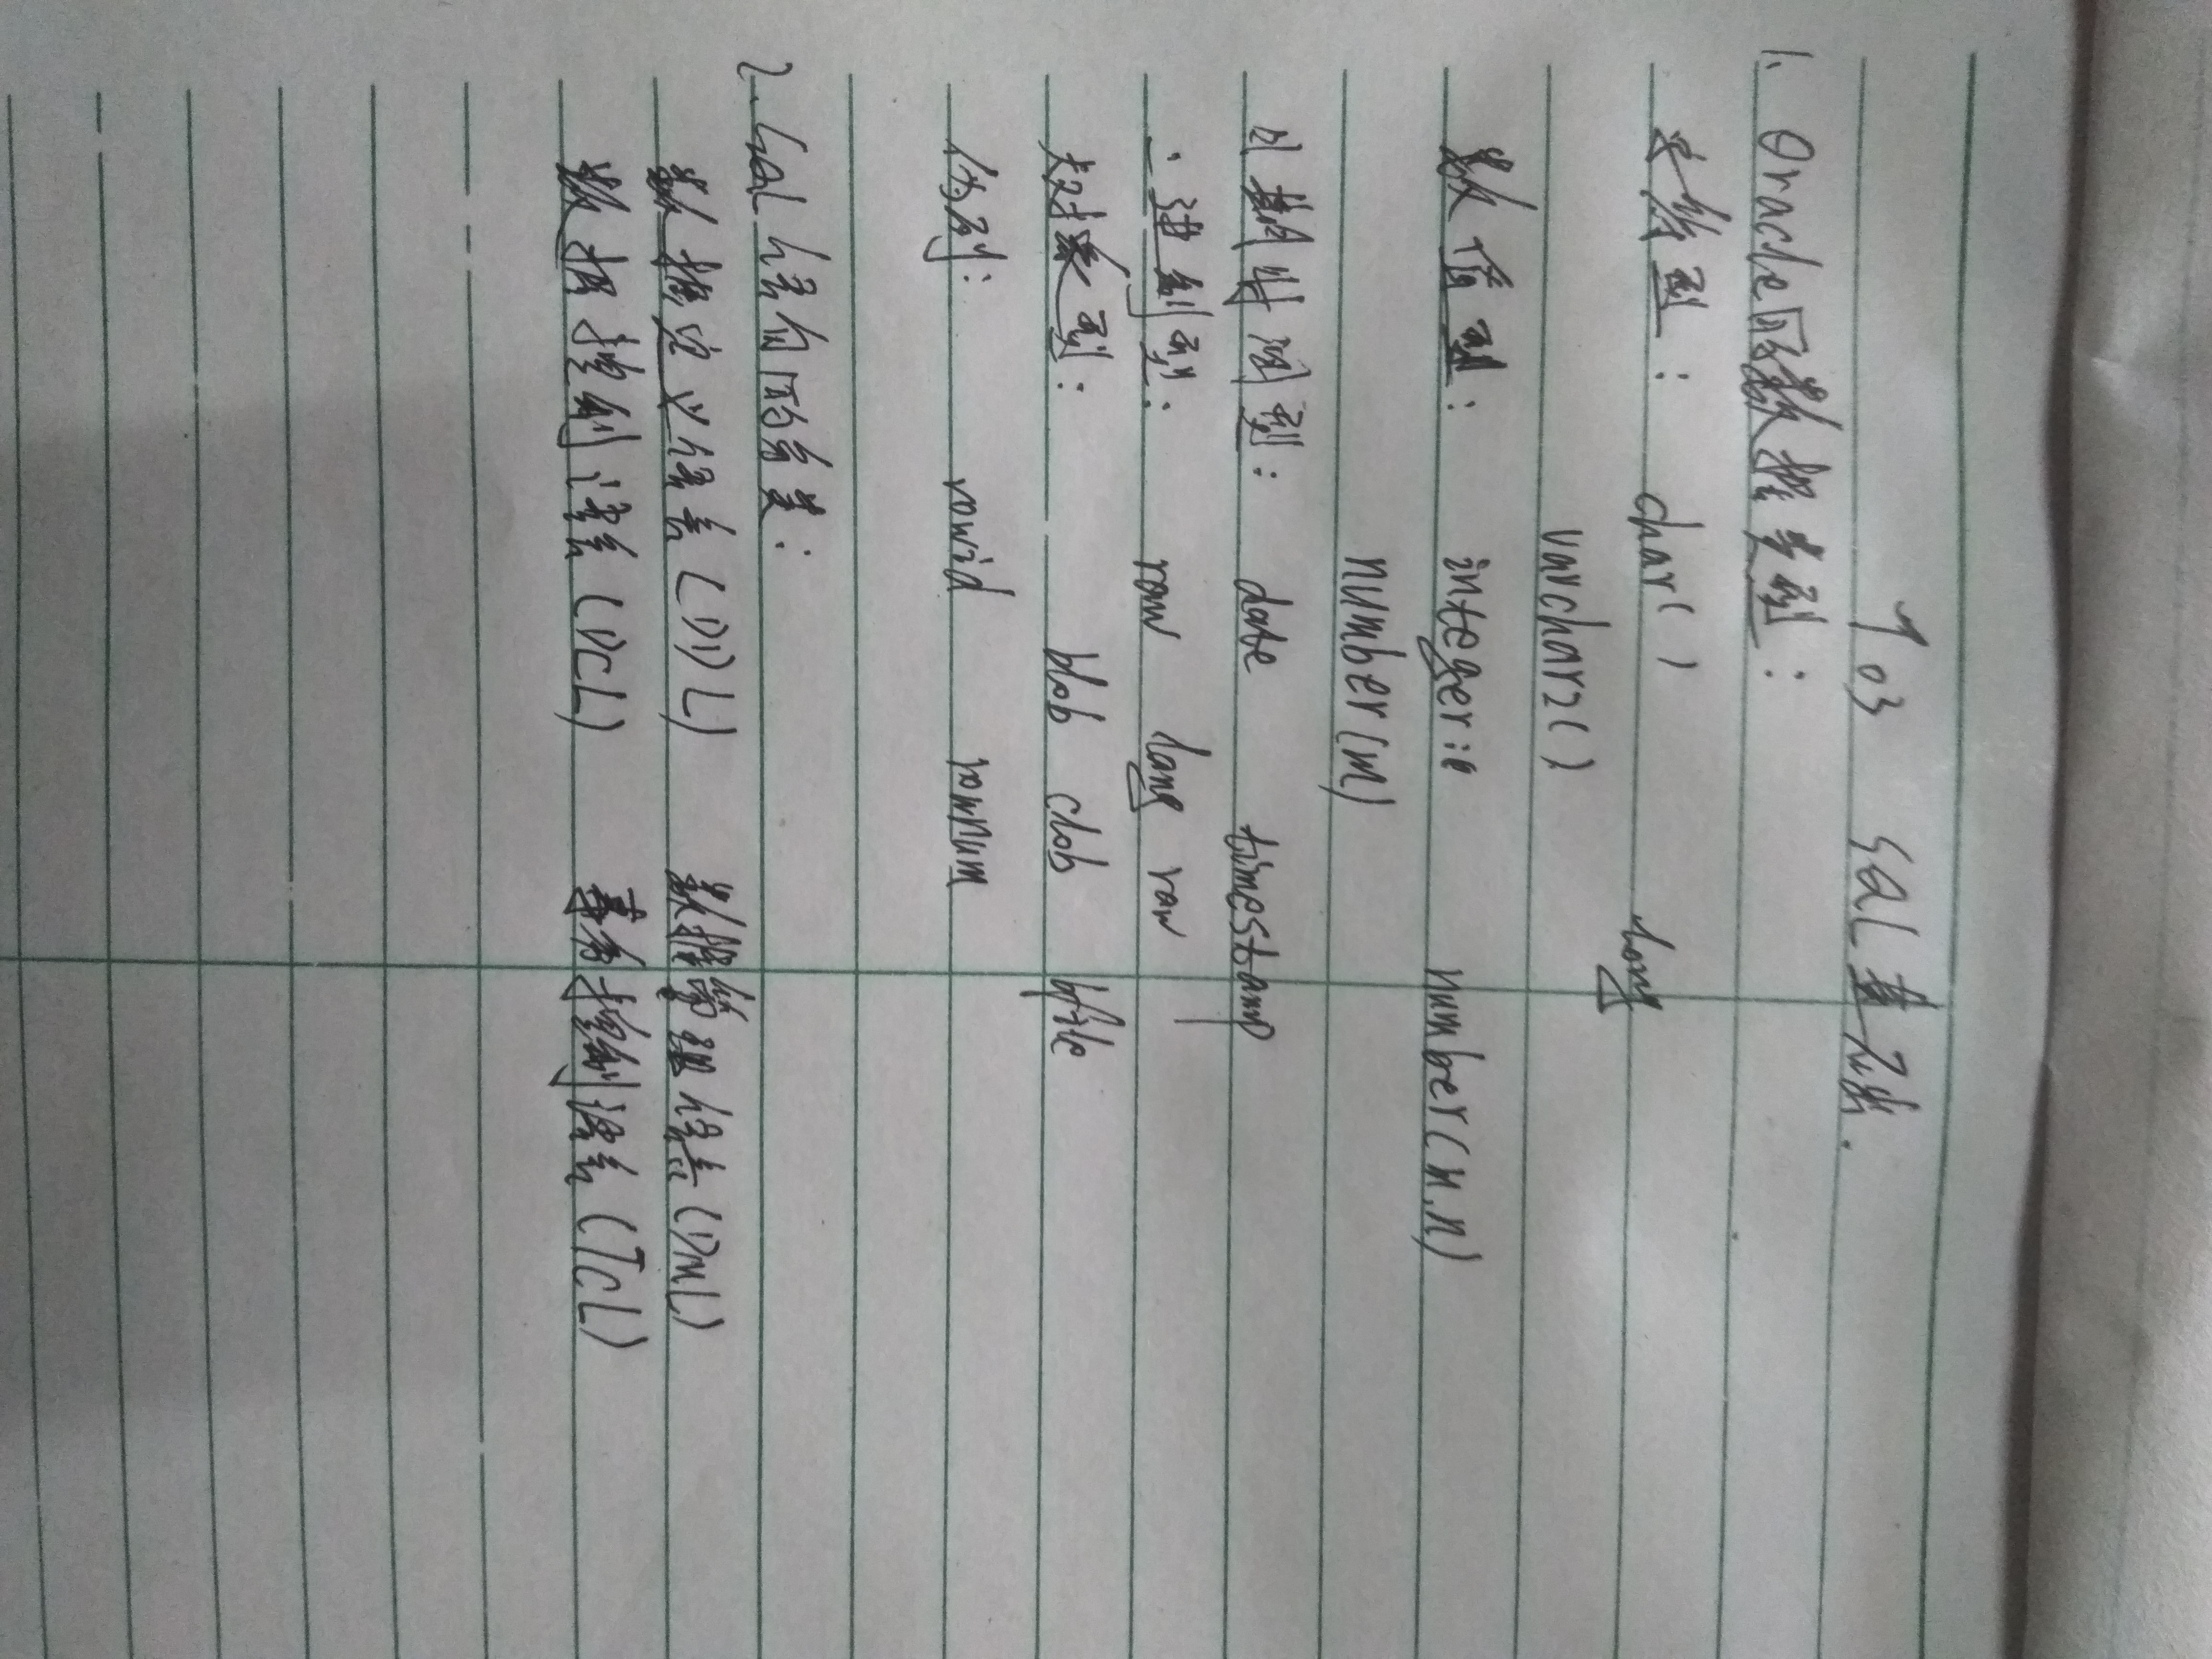 T03 SQL基础.
1. Oracle的数据类型:
字符型: char( ) long
varchar2( )
数值型: integer: number(m,n)
number(m)
日期时间型: date timestamp
二进制型: raw long raw
对象型: blob clob bfile
伪列: rowid rownum
2. SQL语句的分类:
数据定义语言(DDL) 数据管理语言(DML)
数据控制语言(DCL) 事务控制语言(TCL)